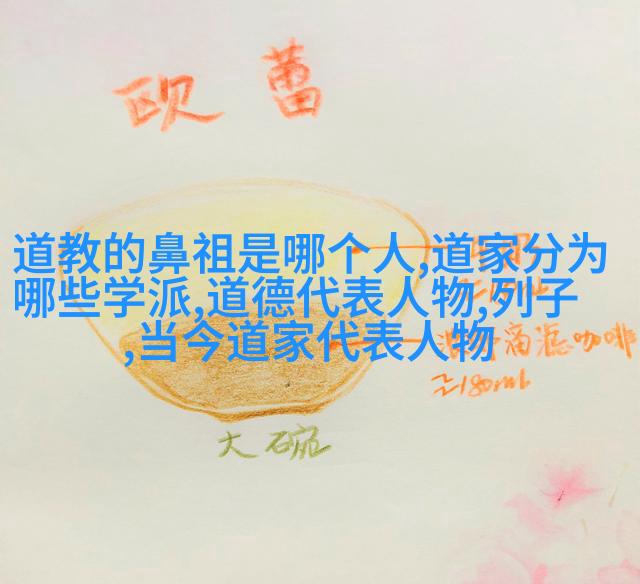 欧蕾
道教的鼻祖是哪个人,道家分为
哪些学派,道德代表人物,列子
,当今道家代表人物
滴滤咖啡
≥180ml
大碗